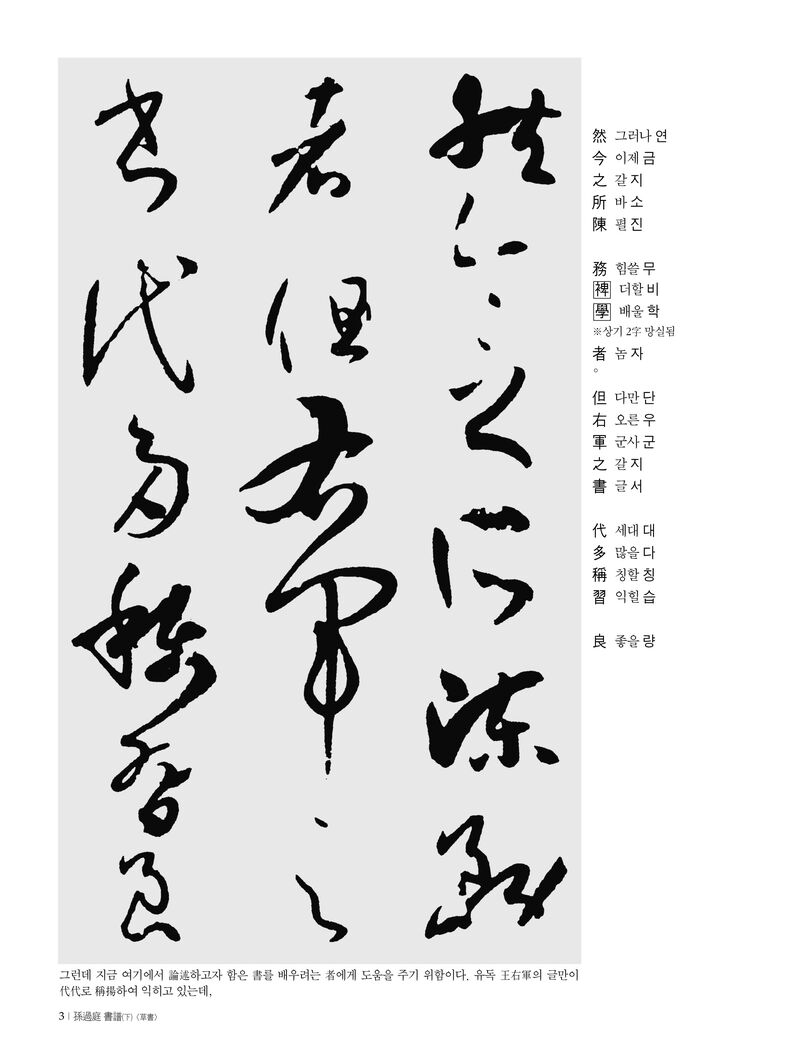 然今之所陳務
者但右軍之
書代多稱習良
然 그러나 연
今 이제 금
之 갈 지
所 바 소
陳 펼 진
務 힘쓸 무
裨 더할 비
學 배울 학
※상기 2字 망실됨
者 놈 자
。
但 다만 단
右 오른 우
軍 군사 군
之 갈 지
書 글 서
代 세대 대
多 많을 다
稱 칭할 칭
習 익힐 습
良 좋을 량
그런데 지금 여기에서 論述하고자 함은 書를 배우려는 者에게 도움을 주기 위함이다. 유독 王右軍의 글만이
代代로 稱揚하여 익히고 있는데,
3 | 孫過庭 書譜(下) 〈草書〉